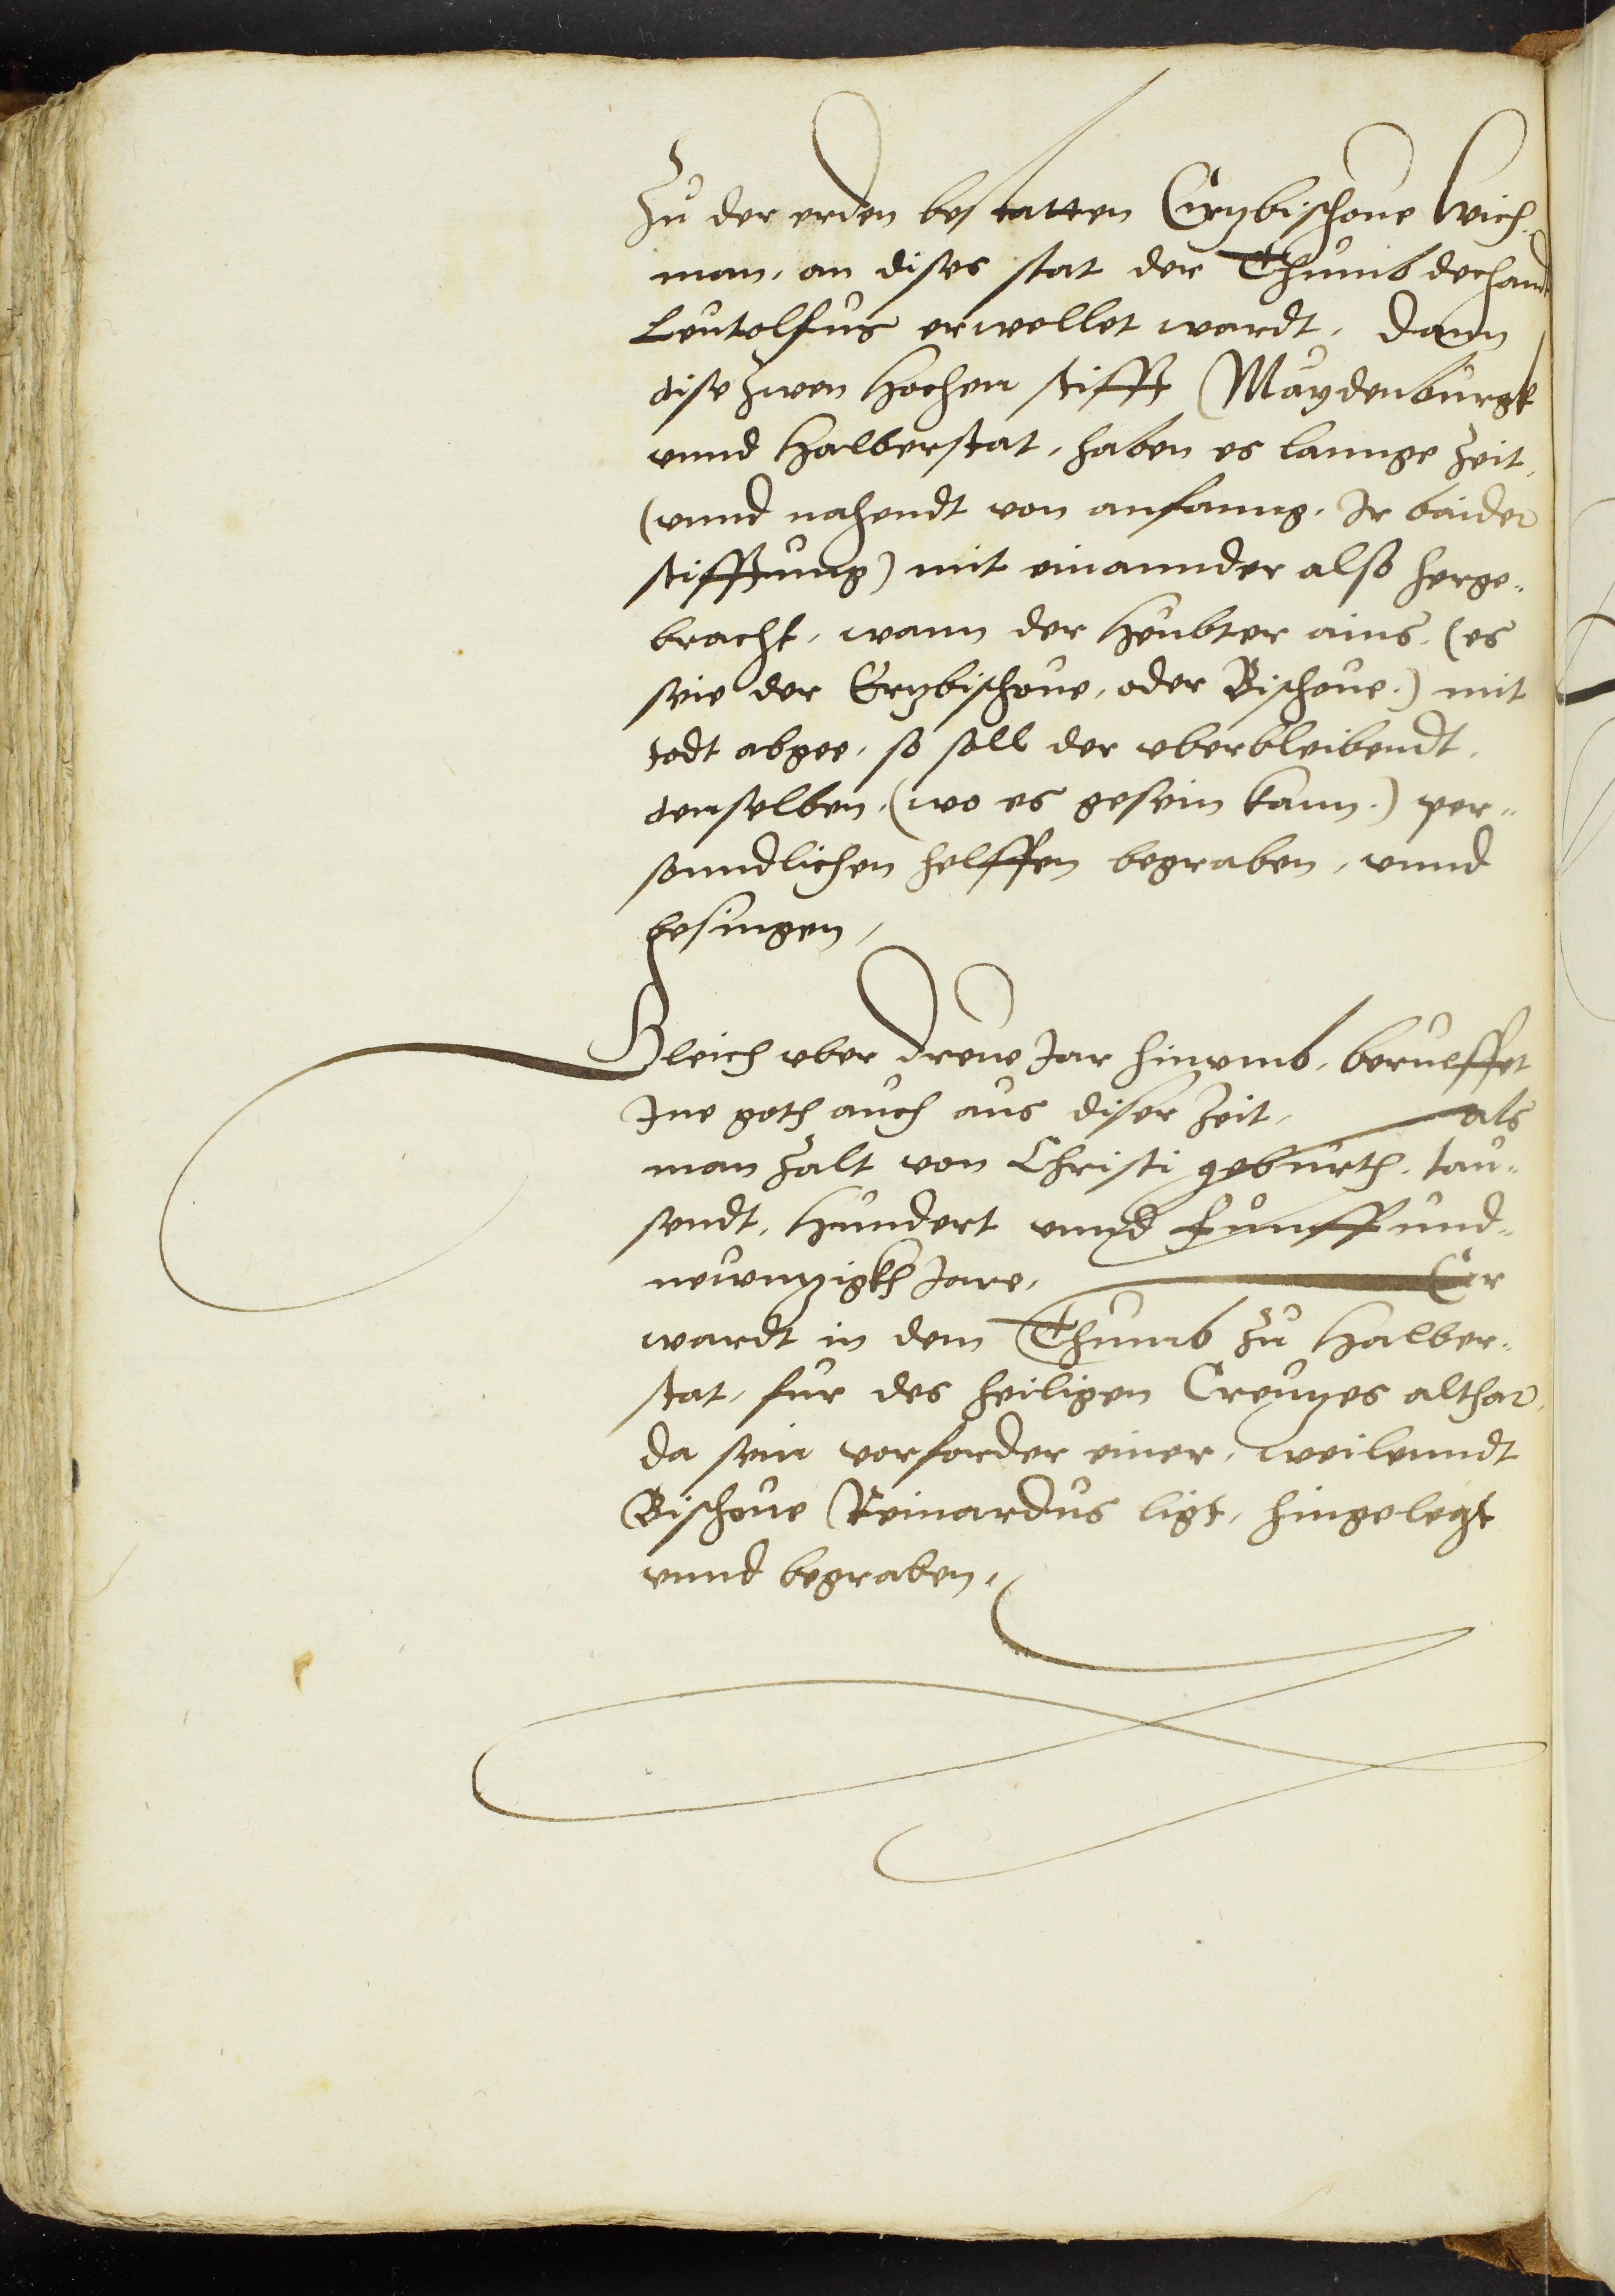 Zu der erden bestatten Ertzbischoue Wich-
man, an dises stat der Thumb dechand
Leutolffus erwellet wardt, Dann
dise zwen hochen stifft Maydenburgk
vnnd Halberstat, haben es lannge zeit,
(vnnd nahendt von anfanng, Ir baider
stifftung) mit einannder also herge-
bracht, wann der heubter ains, (es
seie der Ertzbischoue, oder Bischoue,) mit
todt abgee, so soll der vberbleibendt,
denselben, (wo es gesein kann,) per-
sonndlichen helffen begraben, vnnd
besingen,
Gleich vber drew Jar hinumb, berueffet
Ine goth auch aus diser zeit, als
man zalt von Christi geburth, tau-
sendt, Hundert vnnd funffund-
neuntzigkh Jare, Er
wardt in dem Thumb zu Halber-
stat, fur des heiligen Creutzes althar,
da sein vorforder einer, weilenndt
Bischoue Reinardus ligt, hingelegt
vnnd begraben,